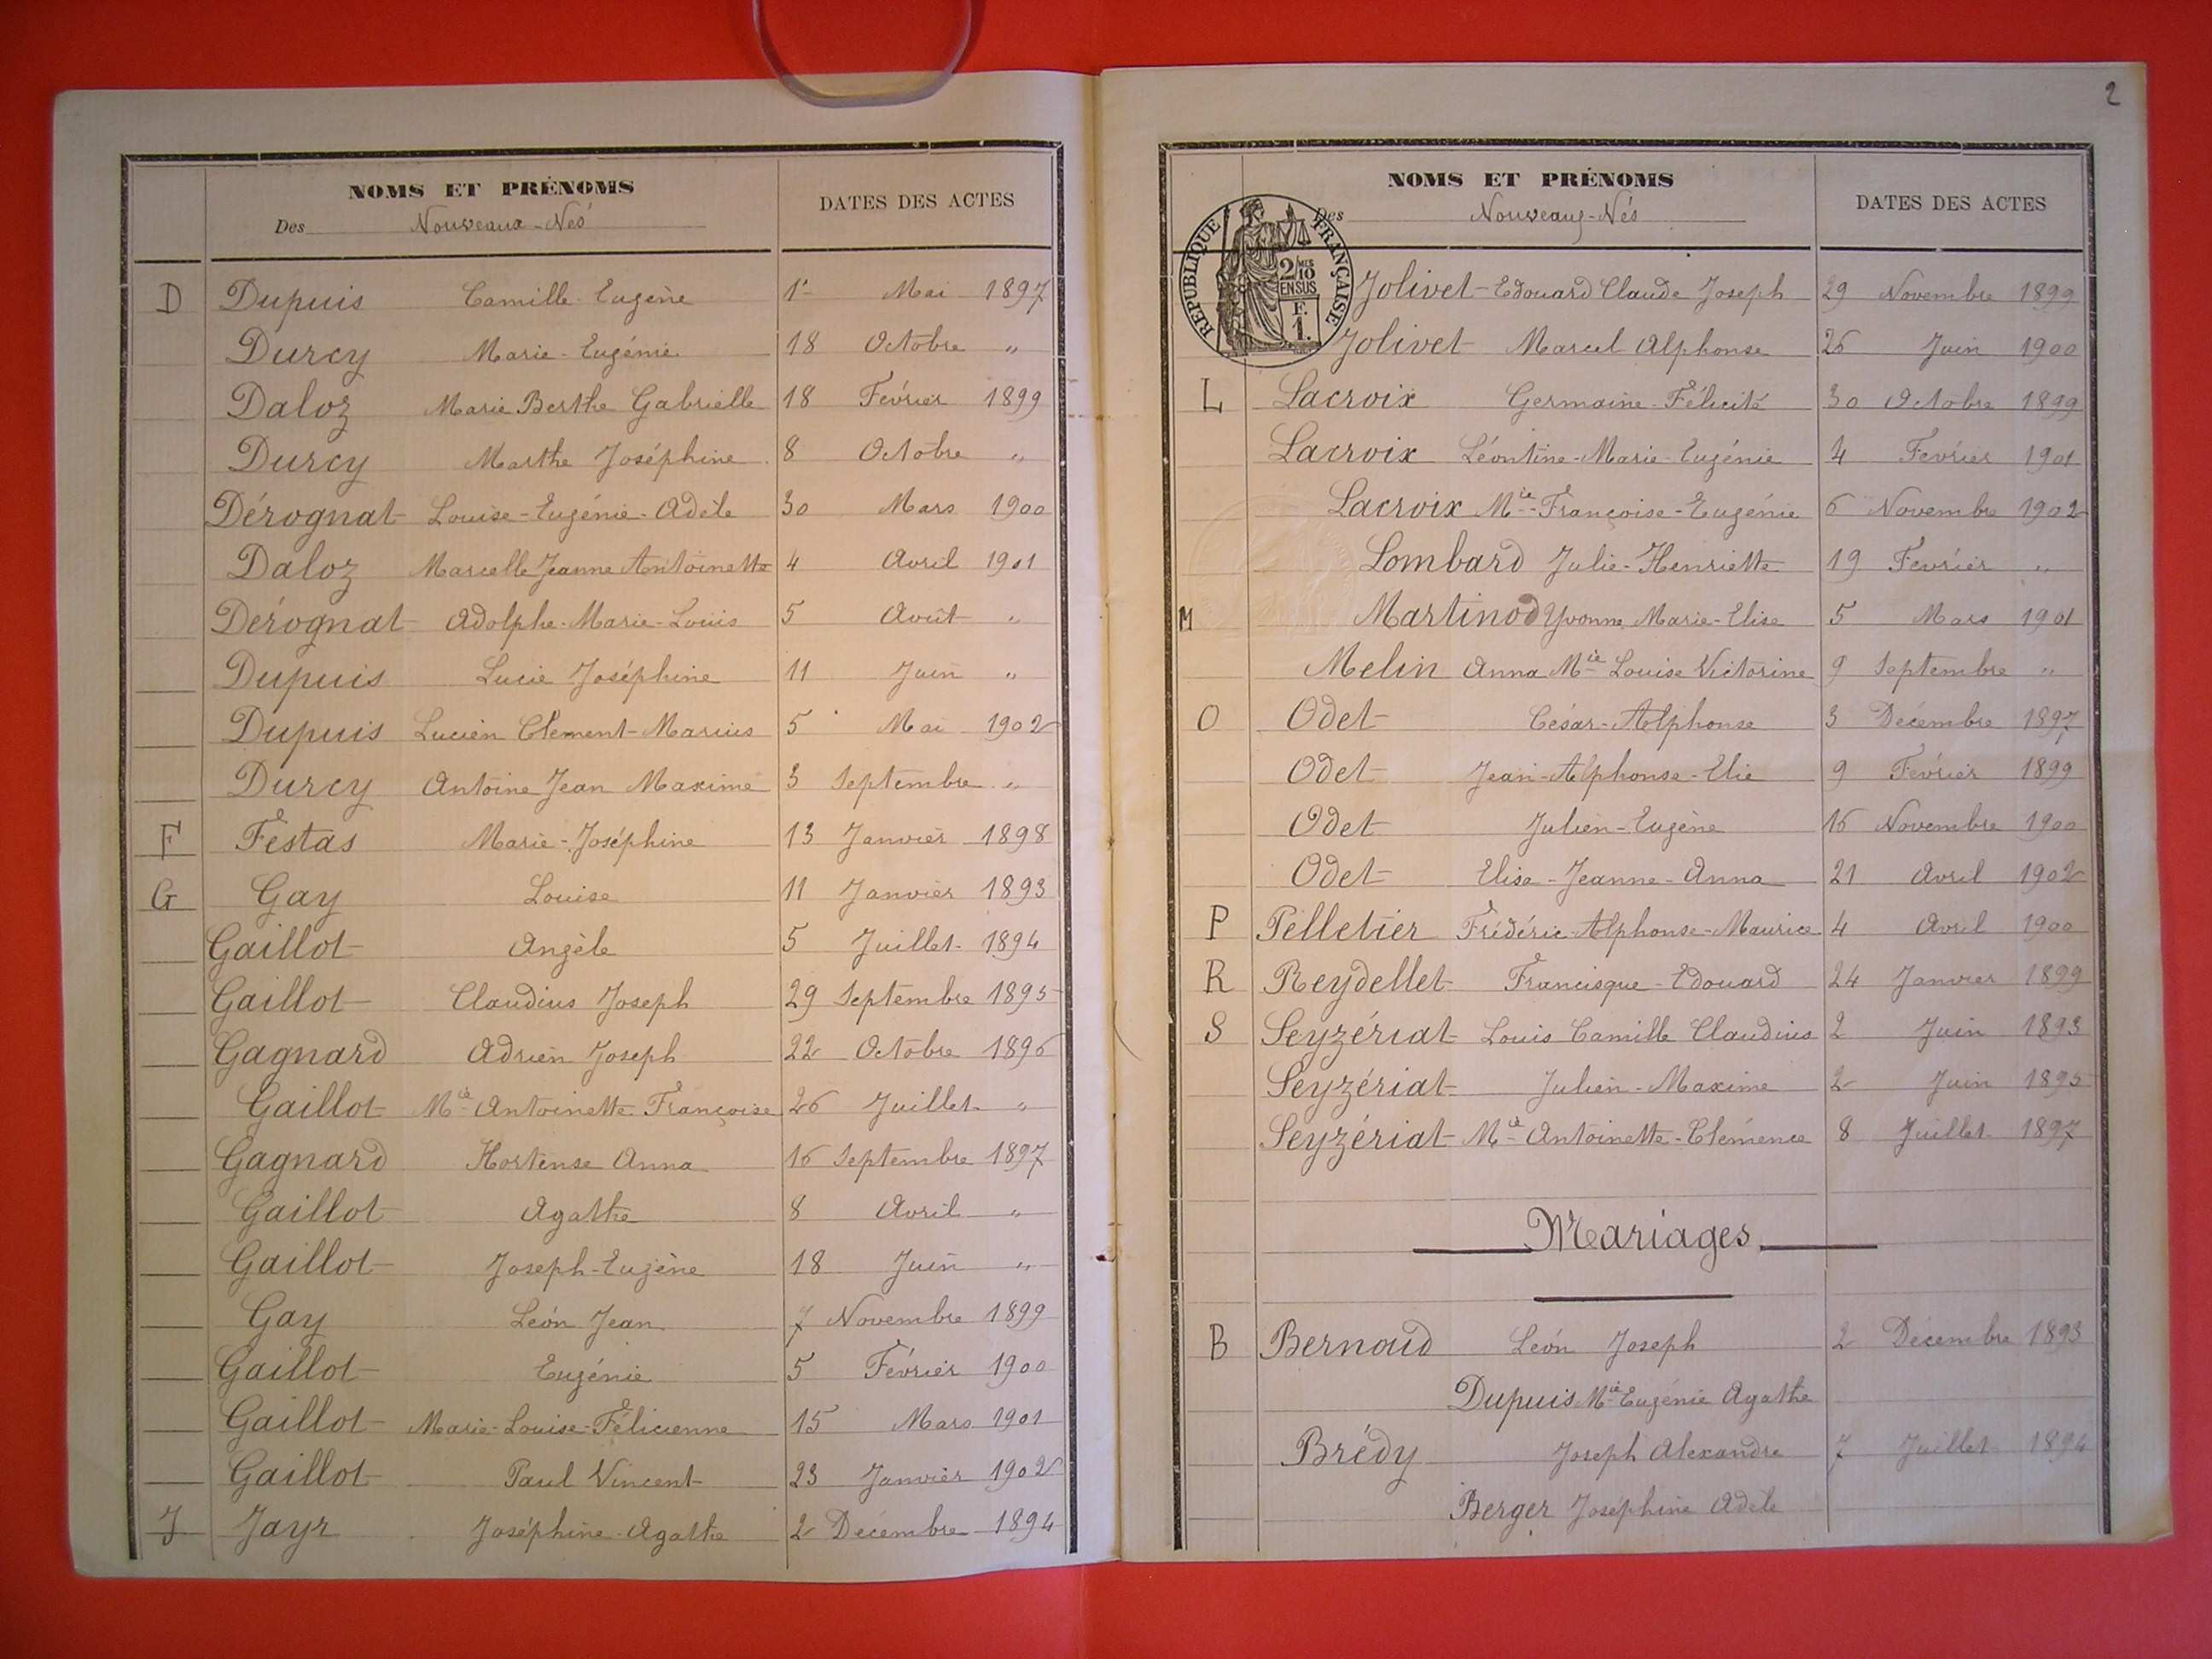 NOMS ET PRÉNOMS
Des Nouveaux-Nés
DATES DES ACTES
D Dupuis Camille Eugène 1er Mai 1897
Durcy Marie-Eugénie 18 Octobre "
Daloz Marie Berthe Gabrielle 18 Février 1899
Durcy Marthe Joséphine 8 Octobre "
Dérognat Louise-Eugénie-Adèle 30 Mars 1900
Daloz Marcelle Jeanne Antoinette 4 Avril 1901
Dérognat Adolphe-Marie-Louis 5 Août "
Dupuis Lucie Joséphine 11 Juin "
Dupuis Lucien Clément-Marius 5 Mai 1902
Durcy Antoine Jean Maxime 3 Septembre "
F Festas Marie-Joséphine 13 Janvier 1898
G Gay Louise 11 Janvier 1893
Gaillot Angèle 5 Juillet 1894
Gaillot Claudius Joseph 29 Septembre 1895
Gagnard Adrien Joseph 22 Octobre 1896
Gaillot Mie Antoinette Françoise 26 Juillet "
Gagnard Hortense Anna 16 Septembre 1897
Gaillot Agathe 8 Avril "
Gaillot Joseph-Eugène 18 Juin "
Gay Léon Jean 7 Novembre 1899
Gaillot Eugénie 5 Février 1900
Gaillot Marie-Louise-Félicienne 15 Mars 1901
Gaillot Paul Vincent 23 Janvier 1902
J Jayr Joséphine-Agathe 2 Décembre 1894
2
NOMS ET PRÉNOMS
Des Nouveaux-Nés
DATES DES ACTES
RÉPUBLIQUE FRANÇAISE
2/10 MES
EN SUS
F.
1.
Jolivet Edouard Claude Joseph 29 Novembre 1899
Jolivet Marcel Alphonse 26 Juin 1900
L Lacroix Germaine-Félicité 30 Octobre 1899
Lacroix Léontine-Marie-Eugénie 4 Février 1901
Lacroix Mie-Françoise-Eugénie 6 Novembre 1902
Lombard Julie-Henriette 19 Février "
M Martinod Yvonne Marie-Elise 5 Mars 1901
Melin Anna Mie Louise Victorine 9 Septembre "
O Odet César-Alphonse 3 Décembre 1897
Odet Jean-Alphonse-Elie 9 Février 1899
Odet Julien-Eugène 16 Novembre 1900
Odet Elise-Jeanne-Anna 21 Avril 1902
P Pelletier Frédéric-Alphonse-Maurice 4 Avril 1900
R Reydellet Francisque-Edouard 24 Janvier 1899
S Seyzériat Louis Camille Claudius 2 Juin 1893
Seyzériat Julien-Maxime 2 Juin 1895
Seyzériat Mie Antoinette-Clémence 8 Juillet 1897
Mariages
B Bernoud Léon Joseph 2 Décembre 1893
Dupuis Mie Eugénie Agathe
Brédy Joseph Alexandre 7 Juillet 1894
Berger Joséphine Adèle